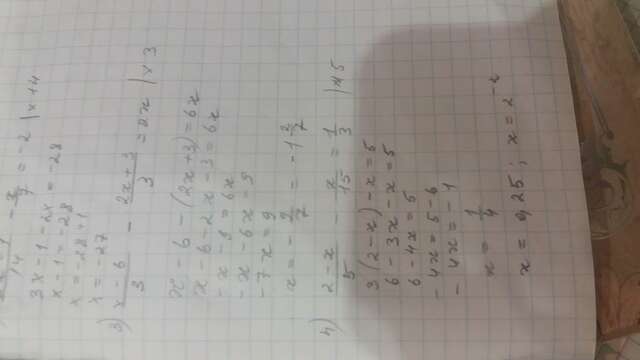 14 - x/7 = -2 | x14
3x - 1 - 2x = -28
x - 1 = -28
x = -28 + 1
x = -27
3) x-6/3 - 2x+3/3 = 2x | x3
x - 6 - (2x+3) = 6x
x - 6 - 2x - 3 = 6x
-x - 9 = 6x
-x - 6x = 9
-7x = 9
x = -9/7 = -1 2/7
4) 2-x/5 - x/15 = 1/3 | x15
3(2-x) - x = 5
6 - 3x - x = 5
6 - 4x = 5
-4x = 5 - 6
-4x = -1
x = 1/4
x = 0,25; x = 2⁻²